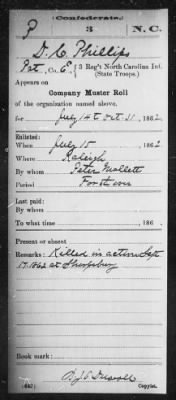 Confederate.
P 3 N.C.
D. C. Phillips
Pvt, Co. E, 3 Reg't North Carolina Inf.
(State Troops.)
Appears on
Company Muster Roll
of the organization named above,
for July 14 to Oct 31, 1862
Enlisted:
When July 15, 1862
Where Raleigh
By whom Peter Mallett
Period For the war
Last paid:
By whom
To what time , 186 .
Present or absent
Remarks: Killed in action Sept
17. 1862 at Sharpsburg
Book mark:
(642) Copyist.